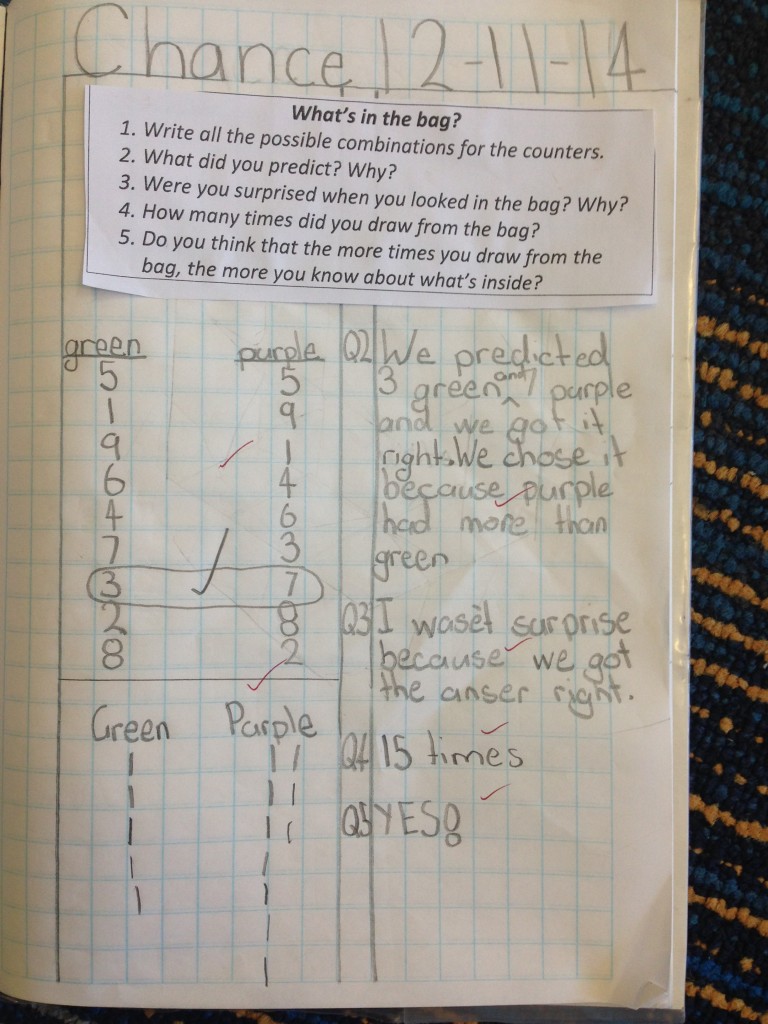 Chance 12-11-14
What's in the bag?
1. Write all the possible combinations for the counters.
2. What did you predict? Why?
3. Were you surprised when you looked in the bag? Why?
4. How many times did you draw from the bag?
5. Do you think that the more times you draw from the
bag, the more you know about what's inside?
green purple
5 5
1 9
9 1
6 4
4 6
7 3
3 7
2 8
8 2
Green Purple
Q2 We predicted
3 green and 7 purple
and we got it
right. We chose it
because purple
had more than
green
Q3 I waset surprise
because we got
the anser right.
Q4 15 times
Q5 YES!